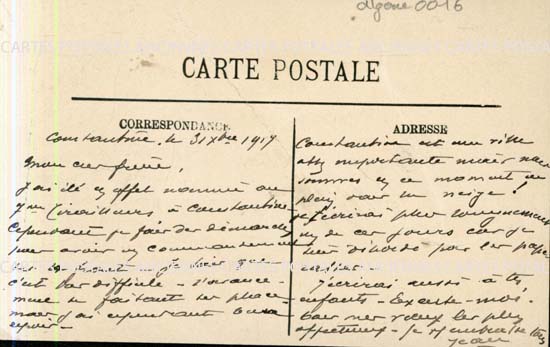 algerie 0016
CARTE POSTALE
CORRESPONDANCE
Constantine, le 31 Xbre 1917
Mon cher frère,
J'ai été en effet nommé au
7me Tirailleurs à Constantine
cependant je fais des démarches
pour avoir un commandement
que
c'est par difficile - 
en faisant
mais j'ai cependant bon
espoir -
ADRESSE
Constantine est une ville
assez importante mais nous
sommes en ce moment en
plein sous la neige !
J'écrirai plus longuement
un de ces jours car je
suis débordé par les pape
J'écrirai aussi à tes
enfants - Excuse-moi -
Bonnes voeux les plus
affectueux - Je t'embrasse tous
Jean